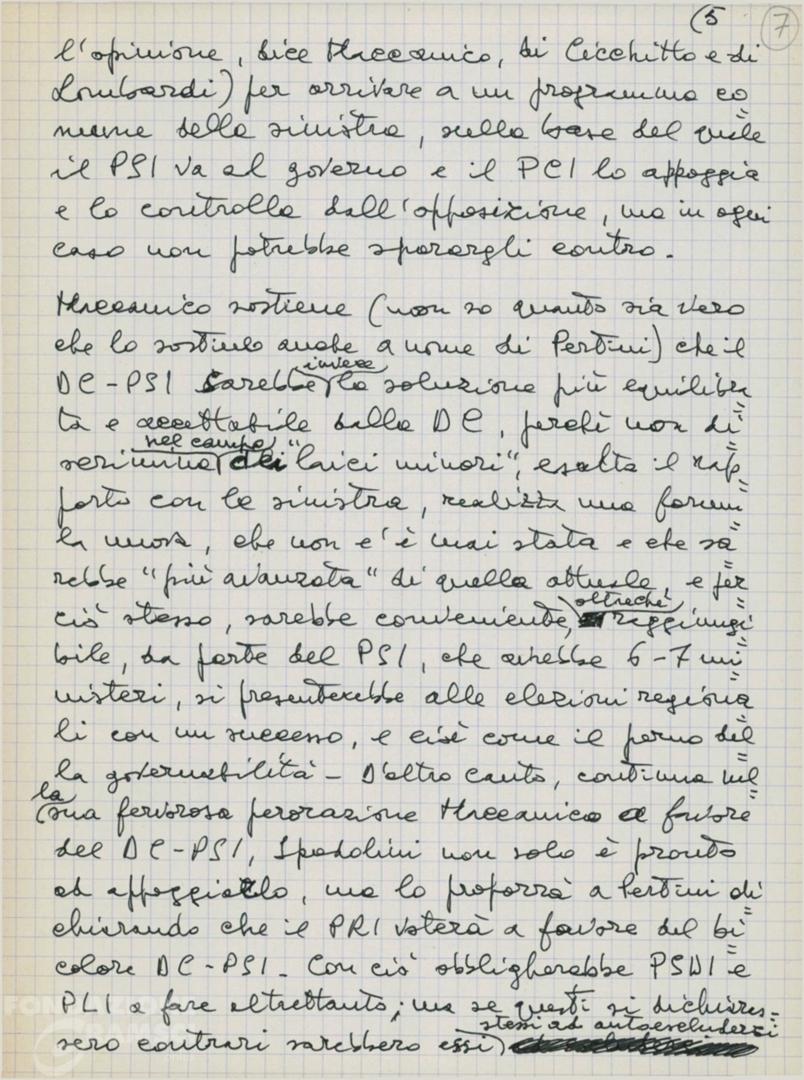 (5
7
l'opinione, dice Maccanico, di Cicchitto e di
Lombardi) per arrivare a un programma co=
mune della sinistra, sulla base del quale
il PSI va al governo e il PCI lo appoggia
e lo controlla dall'opposizione, ma in ogni
caso non potrebbe sparargli contro.
Maccanico sostiene (non so quanto sia vero
che lo sostiene anche a nome di Pertini) che il
DC-PSI sarebbe invece la soluzione più equilibra=
ta e accettabile dalla DC, perché non di=
scrimina nel campo dei "laici minori", esalta il rap=
porto con la sinistra, realizza una formu=
la nuova, che non c'è mai stata e che sa=
rebbe "più avanzata" di quella attuale, e per
ciò stesso, sarebbe conveniente, oltreché raggiungi=
bile, da parte del PSI, che avrebbe 6-7 mi=
nisteri, si presenterebbe alle elezioni regiona=
li con un successo, e cioè come il perno del=
la governabilità - D'altro canto, continua nel=
la sua fervorosa perorazione Maccanico a favore
del DC-PSI, Spadolini non solo è pronto
ad appoggiarlo, ma lo proporrà a Pertini di=
chiarando che il PRI voterà a favore del bi=
colore DC-PSI. Con ciò obbligherebbe PSDI e
PLI a fare altrettanto; ma se questi si dichiaras=
sero contrari sarebbero essi stessi ad autoescludersi
FONDAZIONE
GRAMSCI